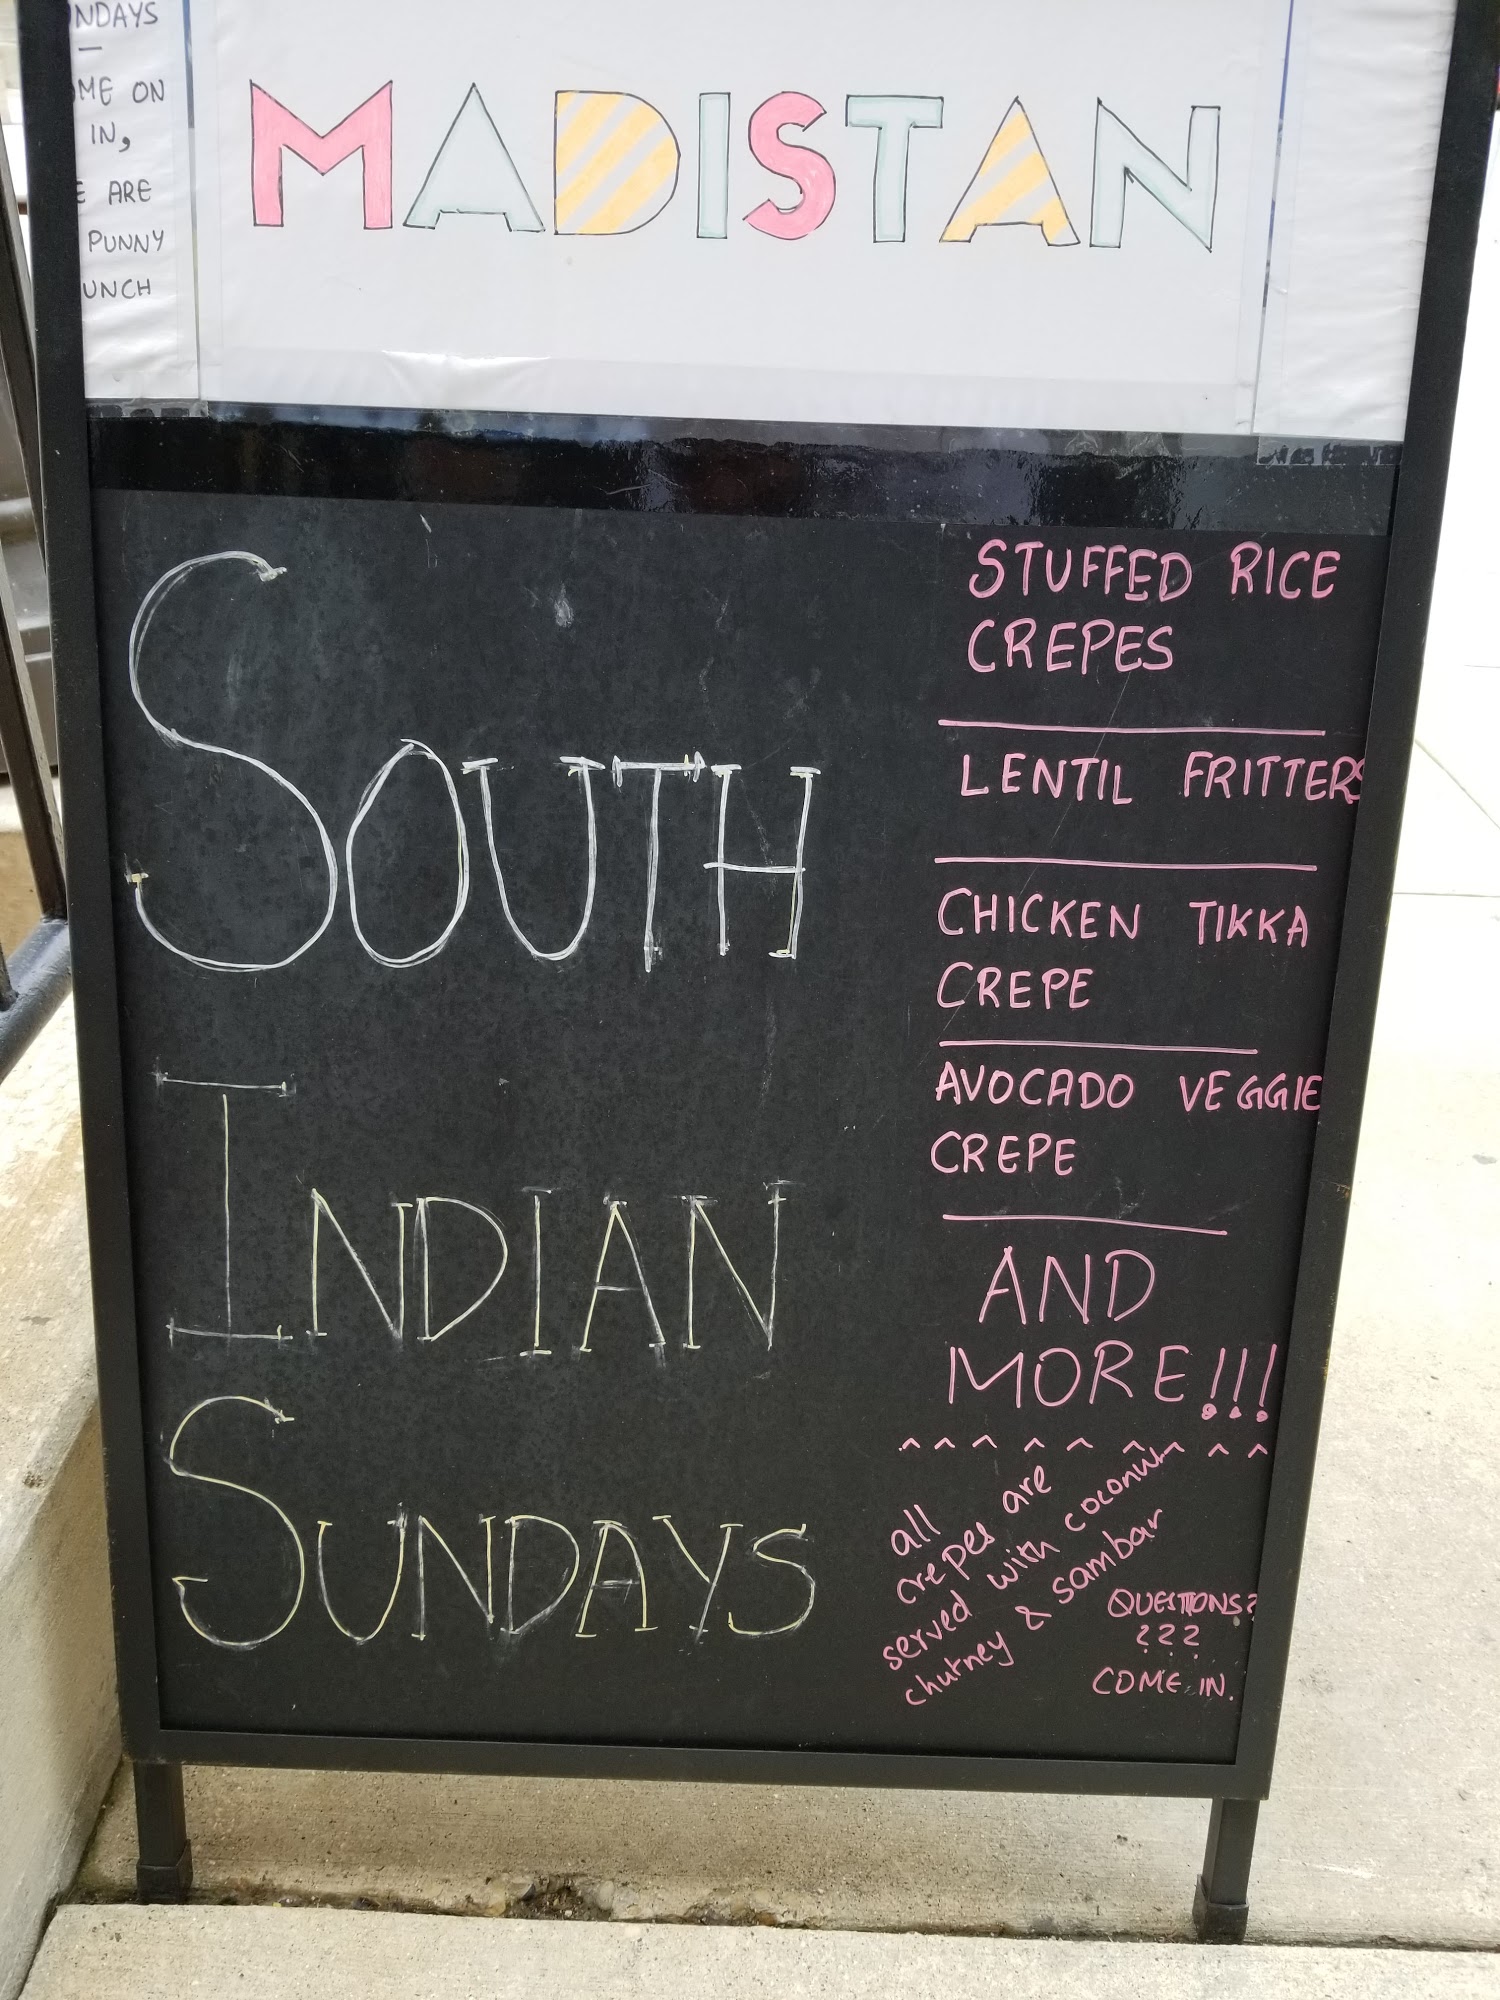 NDAYS
—
ME ON
IN,
E ARE
PUNNY
UNCH
MADISTAN
SOUTH
INDIAN
SUNDAYS
STUFFED RICE
CREPES
LENTIL FRITTERS
CHICKEN TIKKA
CREPE
AVOCADO VEGGIE
CREPE
AND
MORE!!!
^ ^ ^ ^ ^ ^ ^ ^ ^
all
crepes are
served with coconut
chutney & sambar
QUESTIONS?
???
COME IN.